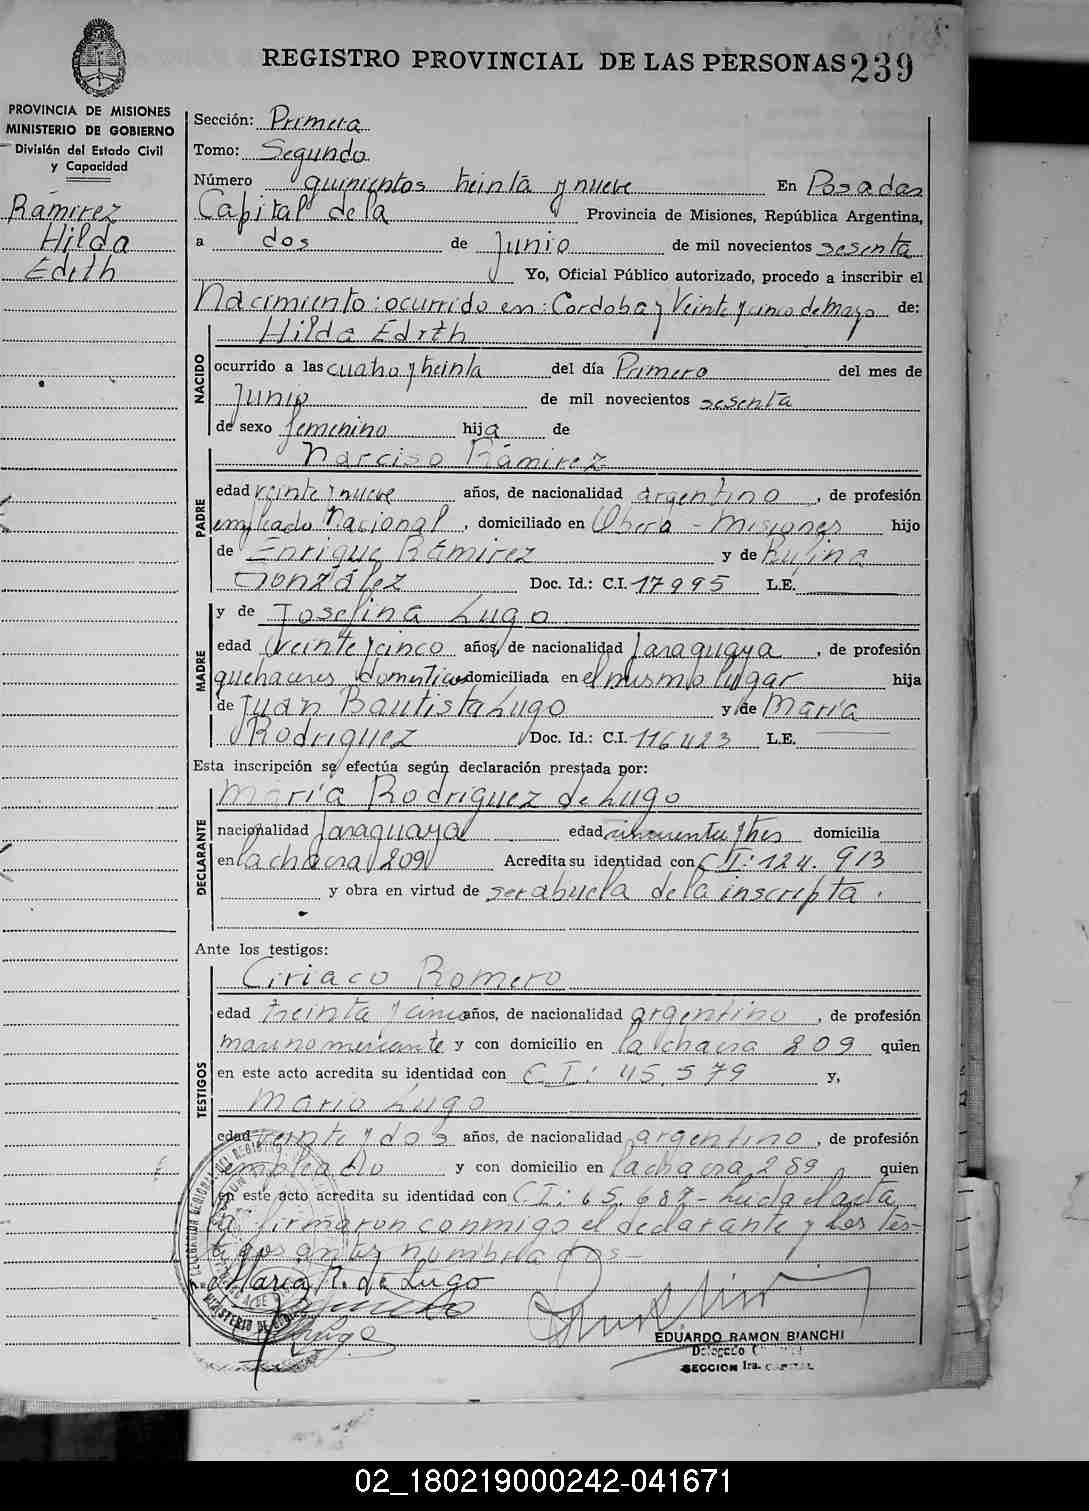 REGISTRO PROVINCIAL DE LAS PERSONAS 239
PROVINCIA DE MISIONES
MINISTERIO DE GOBIERNO
División del Estado Civil
y Capacidad
Ramirez
Hilda
Edith
Sección: Primera
Tomo: Segundo
Número quinientos treinta y nueve En Posadas
Capital de la Provincia de Misiones, República Argentina,
a dos de Junio de mil novecientos sesenta
Yo, Oficial Público autorizado, procedo a inscribir el
Nacimiento: ocurrido en: Cordoba y Veinte y cinco de Mayo de:
NACIDO
Hilda Edith
ocurrido a las cuatro y treinta del día Primero del mes de
Junio de mil novecientos sesenta
de sexo femenino hija de
PADRE
Narciso Ramirez
edad veinte y nueve años, de nacionalidad argentino, de profesión
empleado Nacional, domiciliado en Obera - Misiones hijo
de Enrique Ramirez y de Rufina
González Doc. Id.: C.I. 17995 L.E.
MADRE
y de Josefina Lugo
edad veinte y cinco años, de nacionalidad Paraguaya, de profesión
quehaceres domesticos domiciliada en el mismo lugar hija
de Juan Bautista Lugo y de María
Rodriguez Doc. Id.: C.I. 116423 L.E.
Esta inscripción se efectúa según declaración prestada por:
DECLARANTE
María Rodriguez de Lugo
nacionalidad Paraguaya edad cincuenta y tres domicilia
en la chacra 209 Acredita su identidad con C.I: 124.913
y obra en virtud de ser abuela de la inscripta.
Ante los testigos:
TESTIGOS
Ciriaco Romero
edad treinta y cinco años, de nacionalidad argentino, de profesión
marino mercante y con domicilio en la chacra 209 quien
en este acto acredita su identidad con C.I: 45.579 y,
Mario Lugo
edad veinte y dos años, de nacionalidad argentino, de profesión
empleado y con domicilio en la chacra 289 quien
en este acto acredita su identidad con C.I: 65.687 - Leída el acta
la firmaron conmigo el declarante y los tes-
tigos antes nombrados -
María R. de Lugo
Lugo
EDUARDO RAMON BIANCHI
Delegado
SECCION 1ra. CAPITAL
MINISTERIO DE
02_180219000242-041671